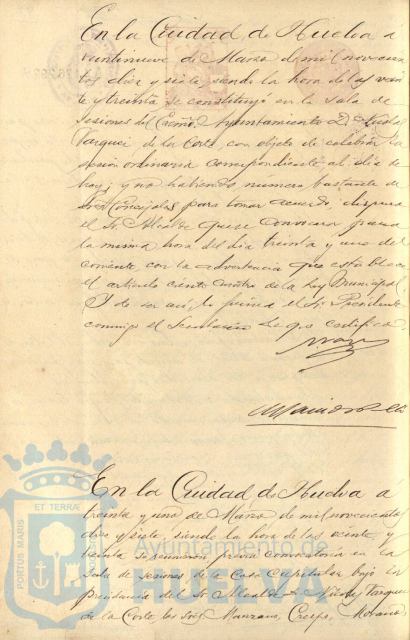 En la Ciudad de Huelva a
veintinueve de Marzo de mil novecien
tos diez y siete, siendo la hora de las vein
te y treinta se constituyó en la sala de
sesiones del Excmo. Ayuntamiento D. Nicolás
Vazquez de la Corte, con objeto de celebrar la
sesión ordinaria correspondiente al día de
hoy, y no habiendo numero bastante de
Sres. Concejales para tomar acuerdo, dispuso
el Sr. Alcalde que se convocara para
la misma hora del día treinta y uno del
corriente, con la advertencia que establece
el artículo ciento cuatro de la ley Municipal
Y de ser así, lo firma el Sr. Presidente
conmigo el Secretario de que certifico.
En la Ciudad de Huelva á
treinta y uno de Marzo de mil novecientos
diez y siete, siendo la hora de las veinte y
treinta se reunieron previa convocatoria en la
Sala de sesiones de la Casa Capitular bajo la
presidencia del Sr. Alcalde D. Nicolás Vazquez
de la Corte los Sres. Manzano, Crespo, Moreno
PORTUS MARIS
ET TERRAE
Ayuntamiento de
HUELVA